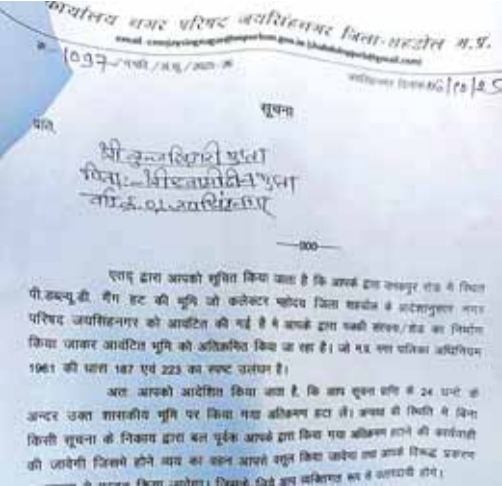 कार्यालय नगर परिषद जयसिंहनगर जिला-शहडोल म.प्र.
क्र. 1097
06/10/25
सूचना
प्रति,
श्री
गुप्ता
पिता
गुप्ता
---000---
एतद् द्वारा आपको सूचित किया जाता है कि आपके द्वारा जनकपुर रोड मे स्थित
पी.डब्ल्यू.डी. गैंग हट की भूमि जो कलेक्टर महोदय जिला शहडोल के आदेशानुसार नगर
परिषद जयसिंहनगर को आवंटित की गई है मे आपके द्वारा पक्की संरचना/शेड का निर्माण
किया जाकर आवंटित भूमि को अतिक्रमित किया जा रहा है। जो म.प्र. नगर पालिका अधिनियम
1961 की धारा 187 एवं 223 का स्पष्ट उलंघन है।
अतः आपको आदेशित किया जाता है, कि आप सूचना प्राप्ति के 24 घन्टे के
अन्दर उक्त शासकीय भूमि पर किया गया अतिक्रमण हटा लें। अन्यथा की स्थिति मे बिना
किसी सूचना के निकाय द्वारा बल पूर्वक आपके द्वारा किया गया अतिक्रमण हटाने की कार्यवाही
की जावेगी जिसमे होने व्यय का वहन आपसे वसूल किया जावेगा तथा आपके विरूद्ध प्रकरण
किया जावेगा। जिसके लिये आप व्यक्तिगत रूप से उत्तरदायी होंगे।